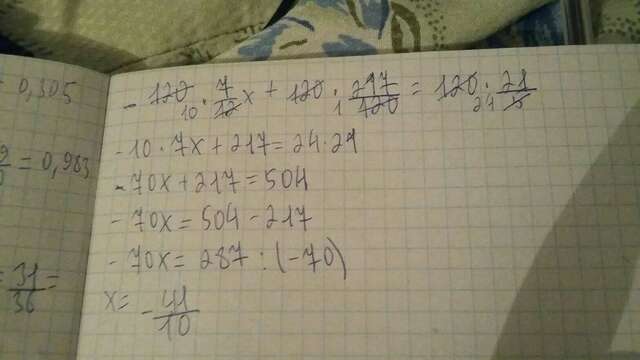 = 0,305
9/0 = 0,983
= 31/36 =
- 120 10 · 7/12 x + 120 · 1 217/120 = 120 · 24 21/5
-10 · 7x + 217 = 24 · 21
-70x + 217 = 504
-70x = 504 - 217
-70x = 287 : (-70)
x = - 41/10